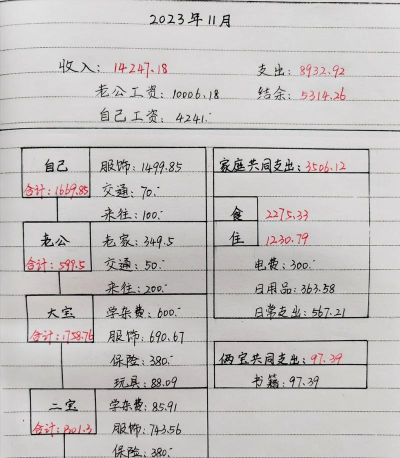 2023年11月
收入：14247.18
支出：8932.92
老公工资：10006.18
结余：5314.26
自己工资：4241.
自己
合计：1669.85
服饰：1499.85
交通：70.
来往：100.
老公
合计：599.5
老家：349.5
交通：50.
来往：200.
大宝
合计：1758.76
学杂费：600.
服饰：690.67
保险：380.
玩具：88.09
二宝
合计：1301.3
学杂费：85.91
服饰：743.56
保险：380.
家庭共同支出：3506.12
食 2275.33
住 1230.79
电费：300.
日用品：363.58
日常支出：567.21
俩宝共同支出：97.39
书籍：97.39